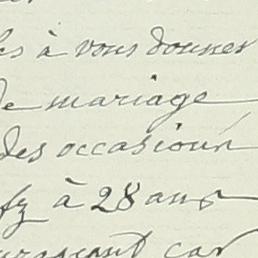 à vous donner
de mariage
des occasions
à 28 ans
car